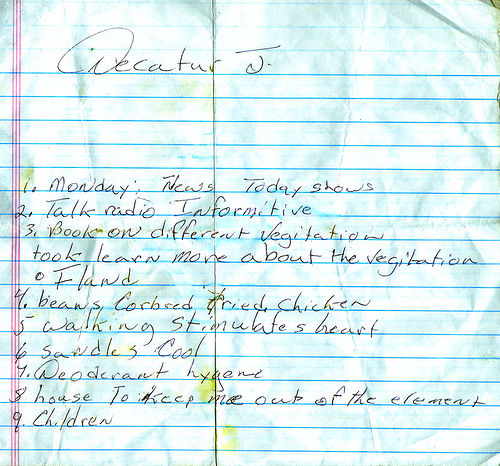 Decatur J.
1. Monday: News Today shows
2. Talk radio Informitive
3. Book on different vegitation
took learn more about the vegitation
o Fland
4. beans Corbred Fried, Chicken
5 walking Stimulates heart
6 Sandles Cool
7. Deoderant hygene
8 house To keep me out of the element
9. Children